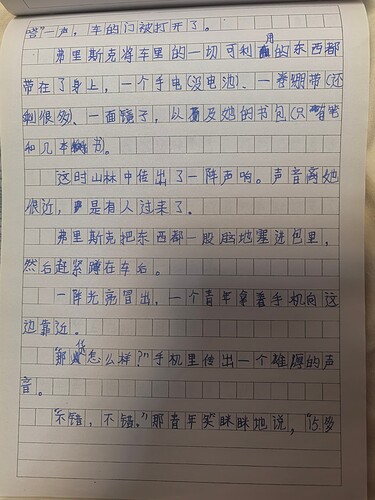 嗒"一声，车的门被打开了。
弗里斯克将车里的一切可利用的东西都
带在了身上，一个手电(没电池)、一卷绷带(还
剩很多)、一面镜子，以及她的书包(只有笔
和几本书)。
这时山林中传出了一阵声响。声音离她
很近，是有人过来了。
弗里斯克把东西都一股脑地塞进包里，
然后赶紧蹲在车后。
一阵光亮冒出，一个青年拿着手机向这
边靠近。
"那货怎么样？"手机里传出一个雄厚的声
音。
"不错，不错。"那青年笑眯眯地说，"15多